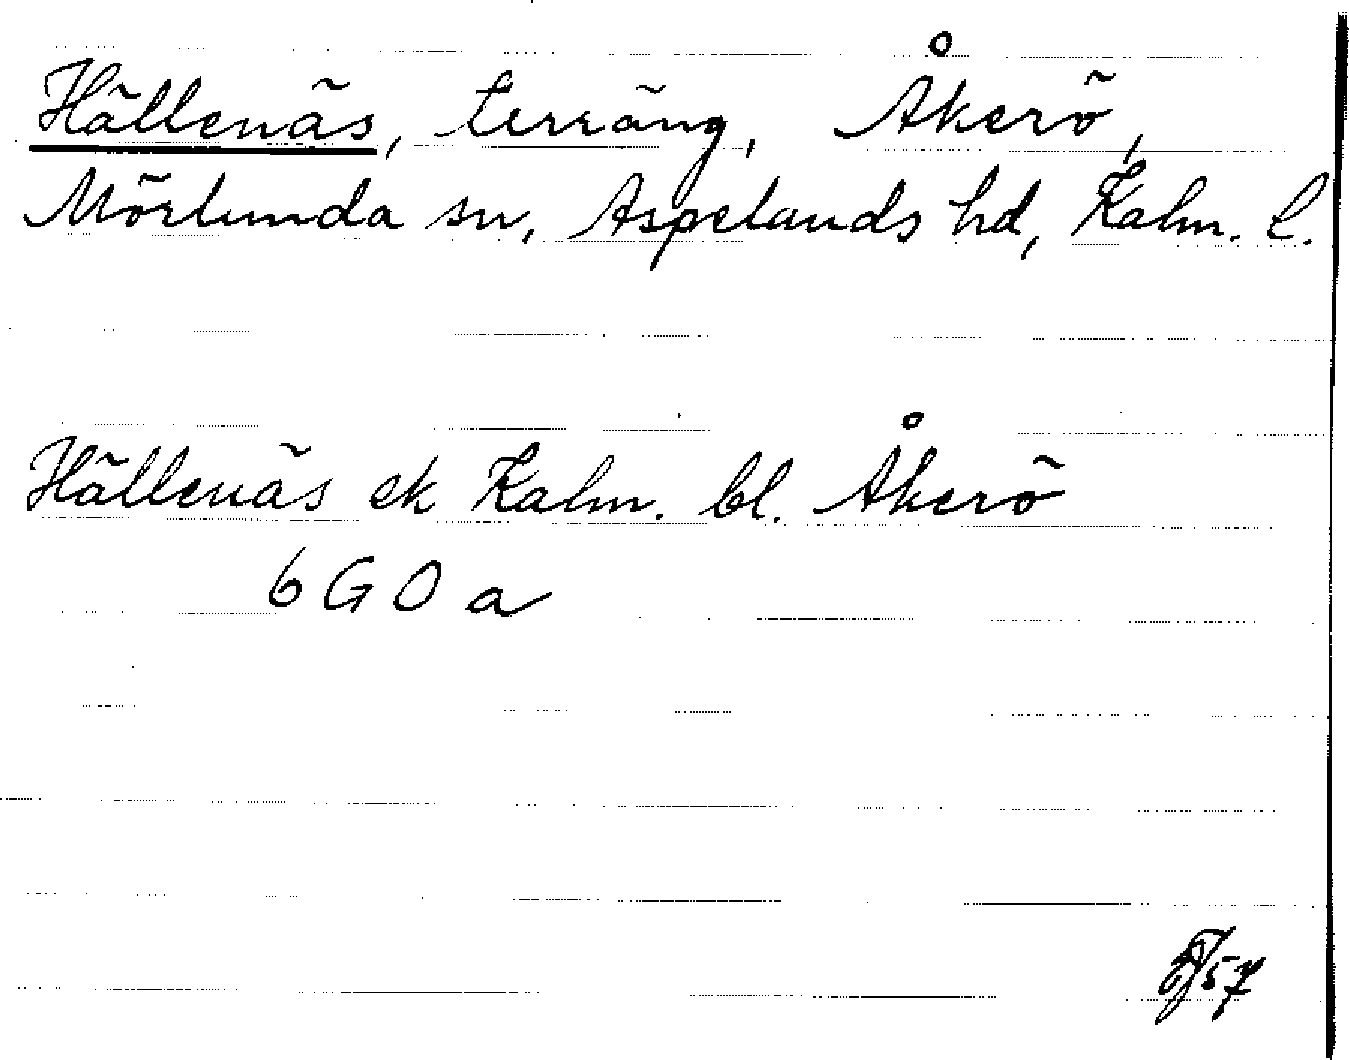 Hällenäs, terräng, Åkerö,
Mörlunda sn, Aspelands hd, Kalm. l.
Hällenäs ek Kalm. bl. Åkerö
6 G 0 a
57